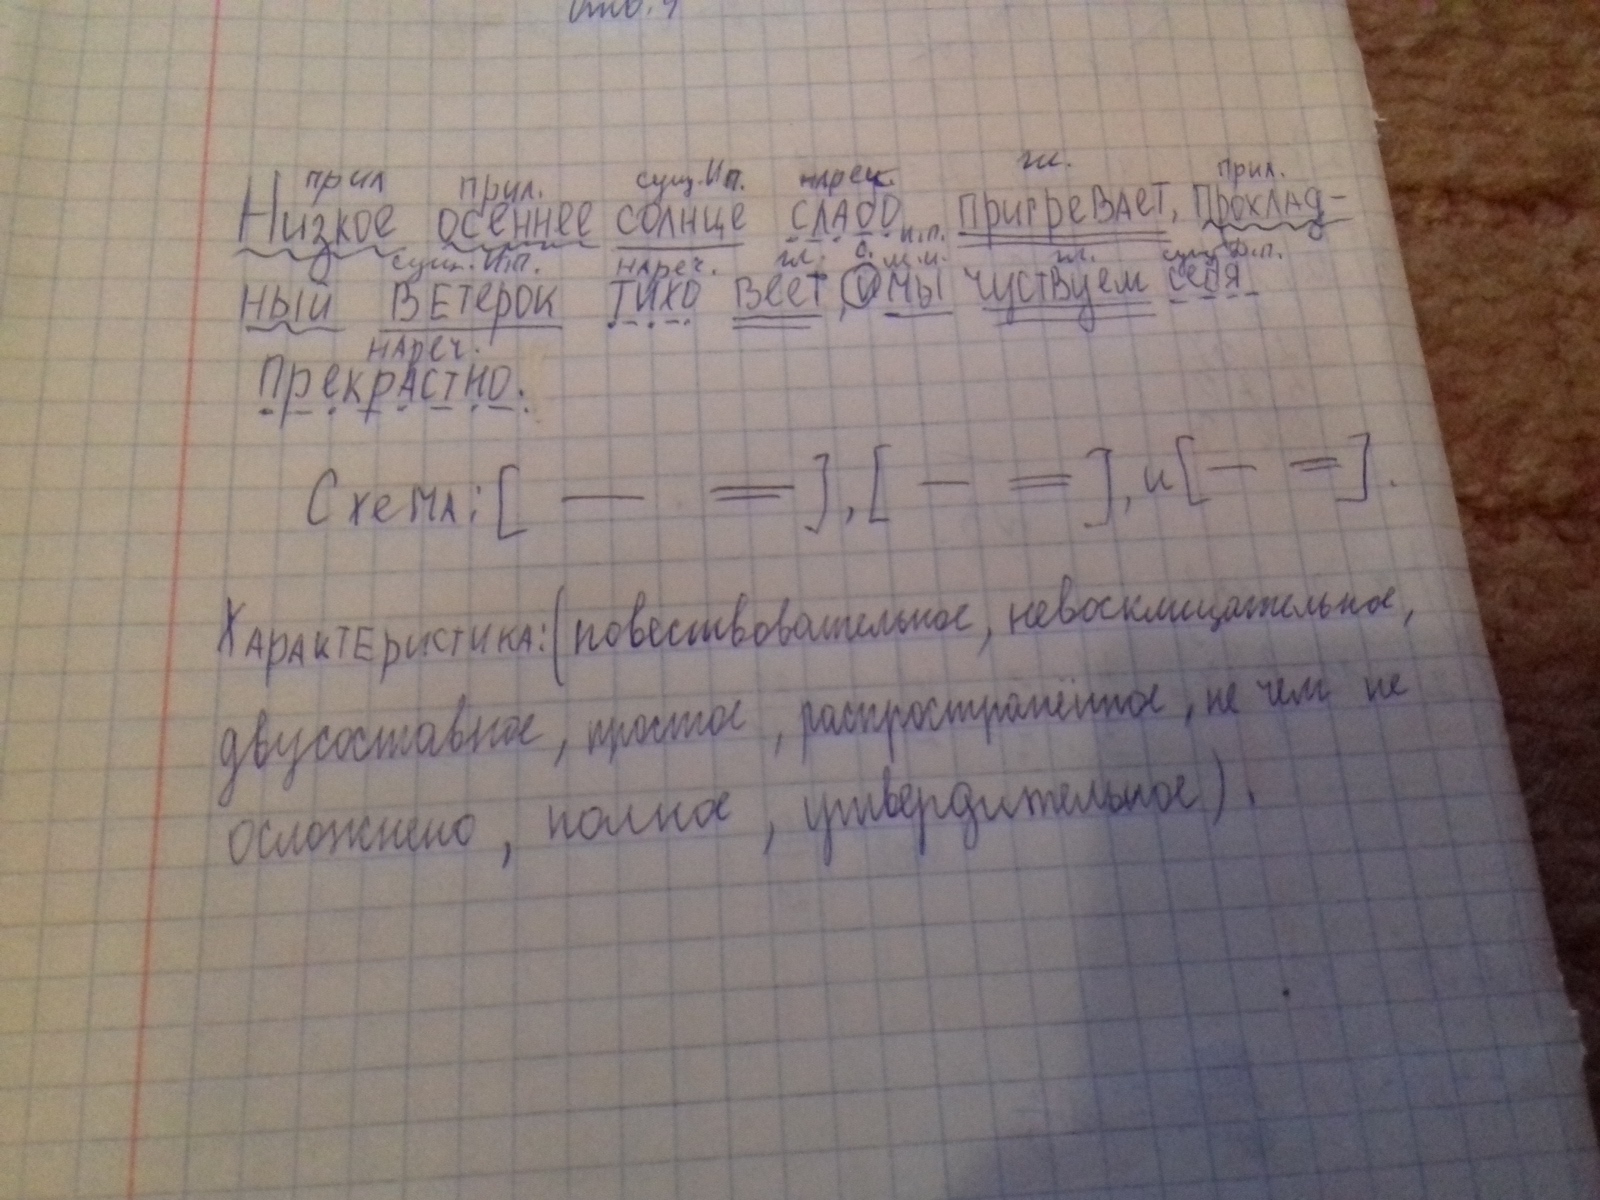 прил прил. сущ. И.п. нареч. гл. прил.
Низкое осеннее солнце слабо пригревает, проклад-
сущ. И.п. нареч. гл. с. м.и. и.п. гл. сущ. Д.п.
ный ветерок тихо веет, и мы чуствуем себя
нареч.
прекрастно.
Схема: [ — = ], [ — = ], и [ — = ].
Характеристика: (повествовательное, невосклицательное,
двусоставное, простое, распространённое, не чем не
осложнено, полное, утвердительное).